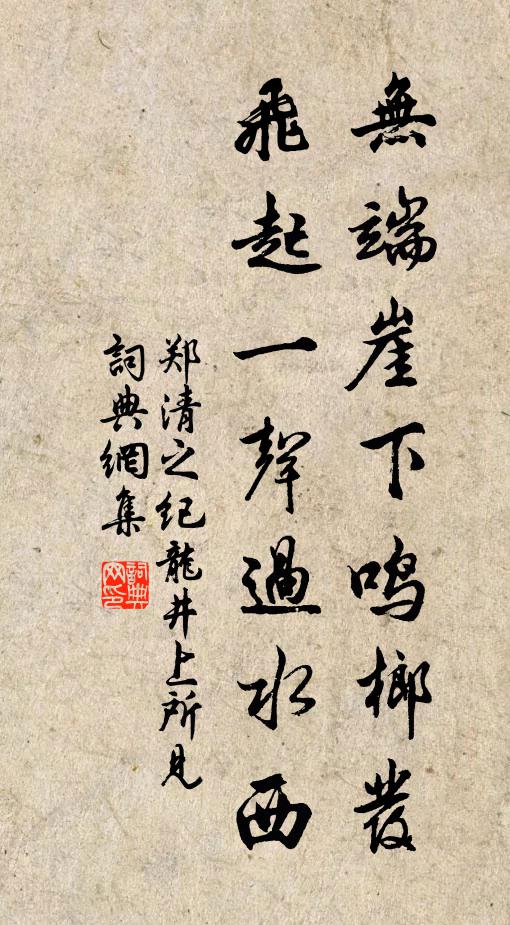 無端崖下鳴榔發
飛起一聲過水西
郑清之纪龍井上所見
詞典網集
詞典网印